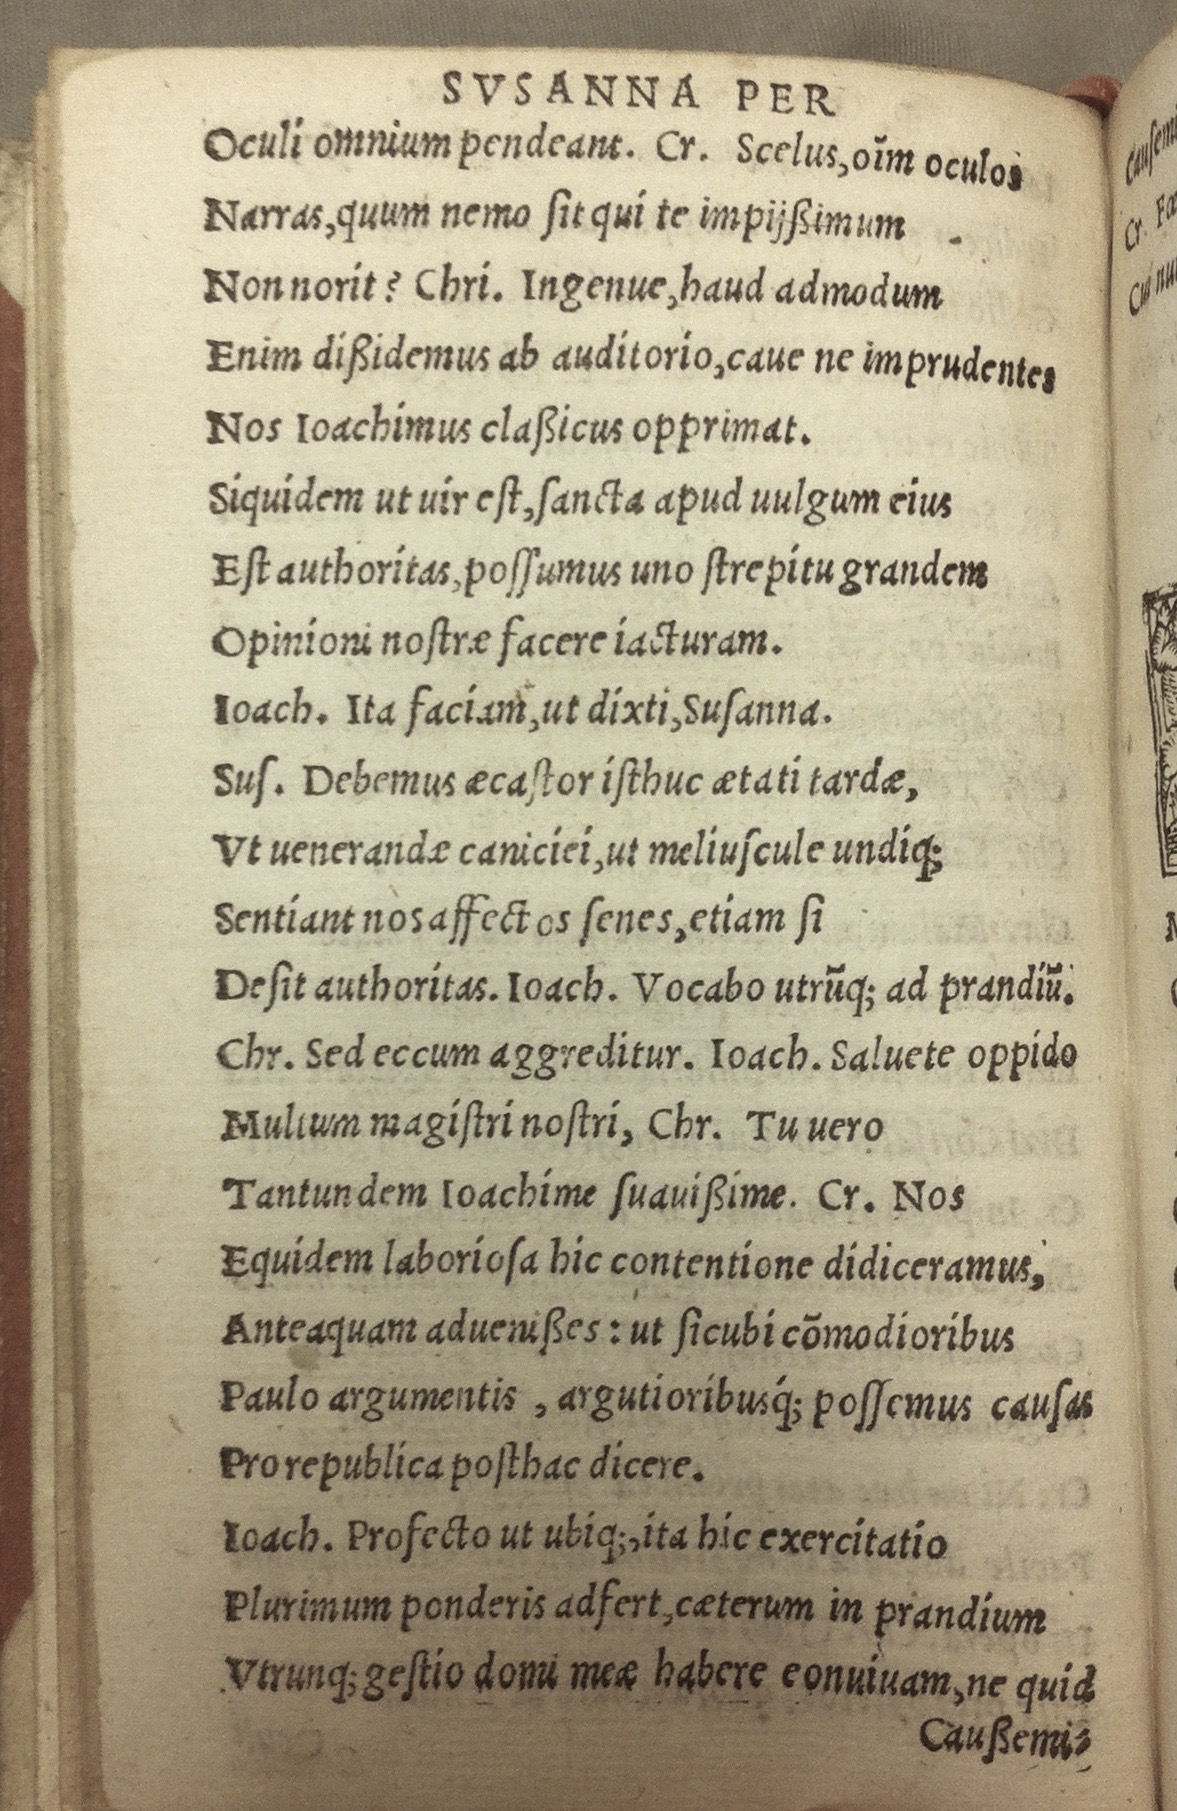 SVSANNA PER
Oculi omnium pendeant. Cr. Scelus, oīm oculos
Narras, quum nemo ſit qui te impijßimum
Non norit? Chri. Ingenue, haud admodum
Enim dißidemus ab auditorio, caue ne imprudentes
Nos Ioachimus claßicus opprimat.
Siquidem ut uir eſt, ſancta apud uulgum eius
Eſt authoritas, poſſumus uno ſtrepitu grandem
Opinioni noſtræ facere iacturam.
Ioach. Ita faciam, ut dixti, Suſanna.
Suſ. Debemus æcaſtor iſthuc ætati tardæ,
Vt uenerandæ caniciei, ut meliuſcule undiq;
Sentiant nos affectos ſenes, etiam ſi
Deſit authoritas. Ioach. Vocabo utrūq; ad prandiū.
Chr. Sed eccum aggreditur. Ioach. Saluete oppido
Multum magiſtri noſtri, Chr. Tu uero
Tantundem Ioachime ſuauißime. Cr. Nos
Equidem laborioſa hic contentione didiceramus,
Anteaquam adueniß​es: ut ſicubi cōmodioribus
Paulo argumentis, argutioribusq́; poſſemus cauſas
Pro republica poſthac dicere.
Ioach. Profecto ut ubiq;, ita hic exercitatio
Plurimum ponderis adfert, cæterum in prandium
Vtrunq; geſtio domi meæ habere conuiuam, ne quid
Cauß​emi⸗
Cauſemi
Cr.
Cui